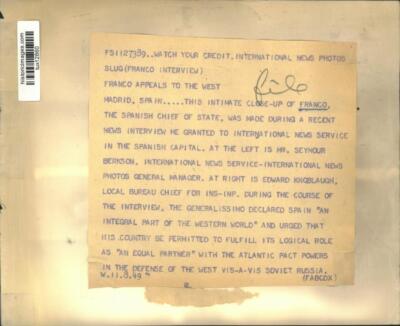 historicimages.com
tux12860
FS1127389..WATCH YOUR CREDIT, INTERNATIONAL NEWS PHOTOS
SLUG(FRANCO INTERVIEW)
FRANCO APPEALS TO THE WEST
file
MADRID, SPAIN.....THIS INTIMATE CLOSE-UP OF FRANCO,
THE SPANISH CHIEF OF STATE, WAS MADE DURING A RECENT
NEWS INTERVIEW HE GRANTED TO INTERNATIONAL NEWS SERVICE
IN THE SPANISH CAPITAL. AT THE LEFT IS MR. SEYMOUR
BERKSON, INTERNATIONAL NEWS SERVICE-INTERNATIONAL NEWS
PHOTOS GENERAL MANAGER. AT RIGHT IS EDWARD KNOBLAUGH,
LOCAL BUREAU CHIEF FOR INS-INP. DURING THE COURSE OF
THE INTERVIEW, THE GENERALISSIMO DECLARED SPAIN "AN
INTEGRAL PART OF THE WESTERN WORLD" AND URGED THAT
HIS COUNTRY BE PERMITTED TO FULFILL ITS LOGICAL ROLE
AS "AN EQUAL PARTNER" WITH THE ATLANTIC PACT POWERS
IN THE DEFENSE OF THE WEST VIS-A-VIS SOVIET RUSSIA.
W.11.8.49 (FABCDX)